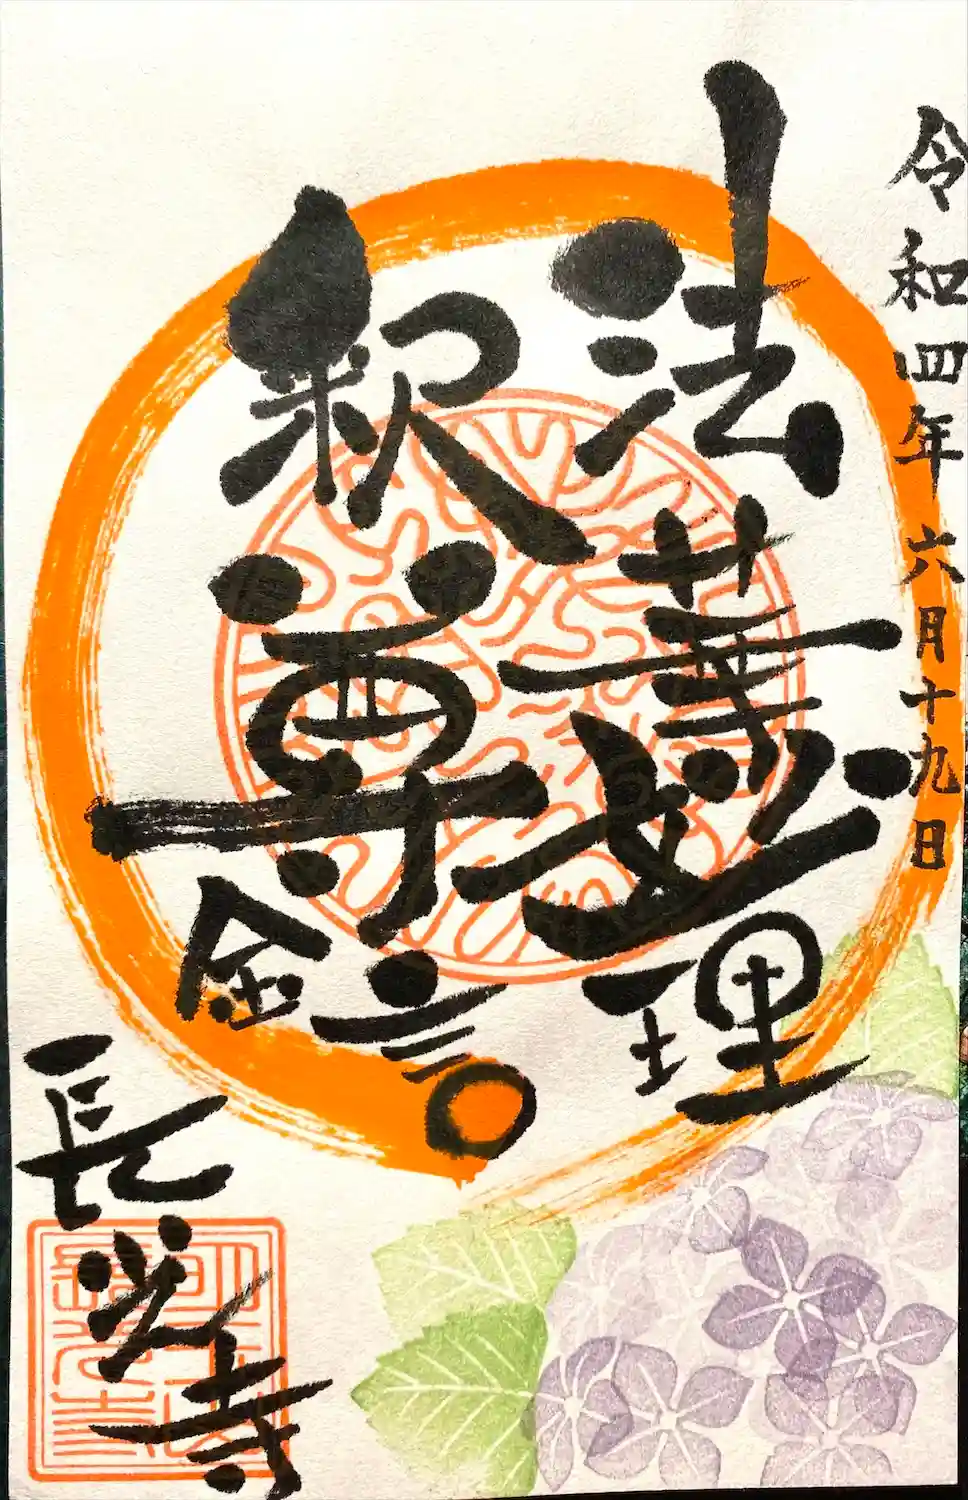 令和四年六月十九日
法華妙理
釈尊金言
長光寺